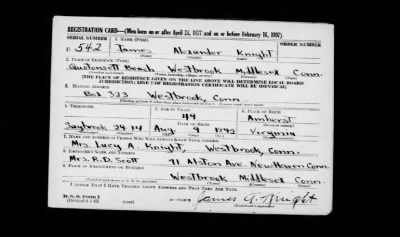 REGISTRATION CARD—(Men born on or after April 28, 1877 and on or before February 16, 1897)
SERIAL NUMBER 1. NAME (Print) ORDER NUMBER
U 542 James Alexander Knight
2. PLACE OF RESIDENCE (Print)
Quotonsett Beach, Westbrook Middlesex Conn.
[THE PLACE OF RESIDENCE GIVEN ON THE LINE ABOVE WILL DETERMINE LOCAL BOARD
JURISDICTION; LINE 2 OF REGISTRATION CERTIFICATE WILL BE IDENTICAL]
3. MAILING ADDRESS
Box 323 Westbrook, Conn
4. TELEPHONE 5. AGE IN YEARS 6. PLACE OF BIRTH
49 Amherst
Saybrook 24-14 Aug 9 1892 Virginia
7. NAME AND ADDRESS OF PERSON WHO WILL ALWAYS KNOW YOUR ADDRESS
Mrs. Lucy A. Knight, Westbrook, Conn.
8. EMPLOYER'S NAME AND ADDRESS
Mrs. R.D. Scott 71 Alston Ave. New Haven Conn.
9. PLACE OF EMPLOYMENT OR BUSINESS
Westbrook Middlesex Conn.
I AFFIRM THAT I HAVE VERIFIED ABOVE ANSWERS AND THAT THEY ARE TRUE.
D. S. S. Form 1
James A. Knight